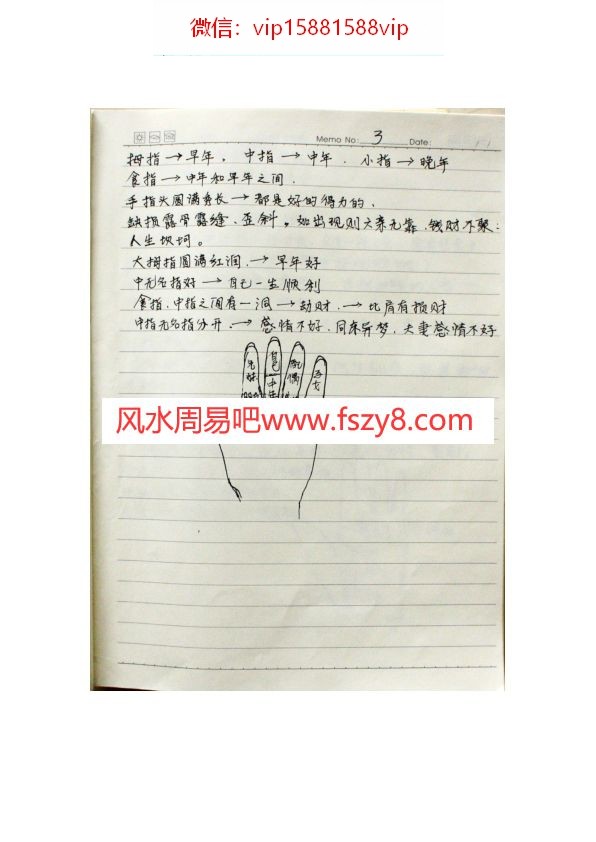 微信：vip15881588vip
Memo No: 3 Date:
拇指→早年，中指→中年．小指→晚年
食指→中年和早年之间．
手指头圆满秀长→都是好的得力的．
缺损露骨露缝、歪斜。如出现则六亲无靠，钱财不聚：
人生坎坷。
大拇指圆满红润．→早年好
中无名指好→自己一生顺利
食指、中指之间有一洞→劫财．→比肩有损财
中指无名指分开．→感情不好．同床异梦，夫妻感情不好
兄妹 自己 配偶 子女
中年
风水周易吧www.fszy8.com